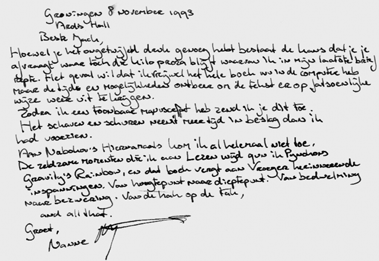 Groningen 8 November 1993
Aedes Hall
Beste Mach,
Hoewel je het ongetwijfeld druk genoeg hebt bestaat de kans dat je je
afvraagt waar toch die kilo papier blijft waarvan ik in mijn laatste brief
repte. Het geval wil dat ik vrijwel het hele boek nu in de computer heb
maar de tijd en mogelijkheden ontbeer om de tekst er op fatsoenlijke
wijze weer uit te krijgen.
Zodra ik een toonbaar manuscript heb zend ik je dit toe.
Het schaven en schuren neemt meer tijd in beslag dan ik
had voorzien.
Aan Nabokov's Hiernamaals kom ik al helemaal niet toe.
De zeldzame momenten die ik aan Lezen wijd gun ik Pynchons
Gravity's Rainbow, en dat boek vergt ook vroeger herinnerende
inspanningen. Van hoogtepunt naar dieptepunt. Van bedwelming
naar bezwering. Van de hak op de tak,
and all that.
Groet,
Nanne